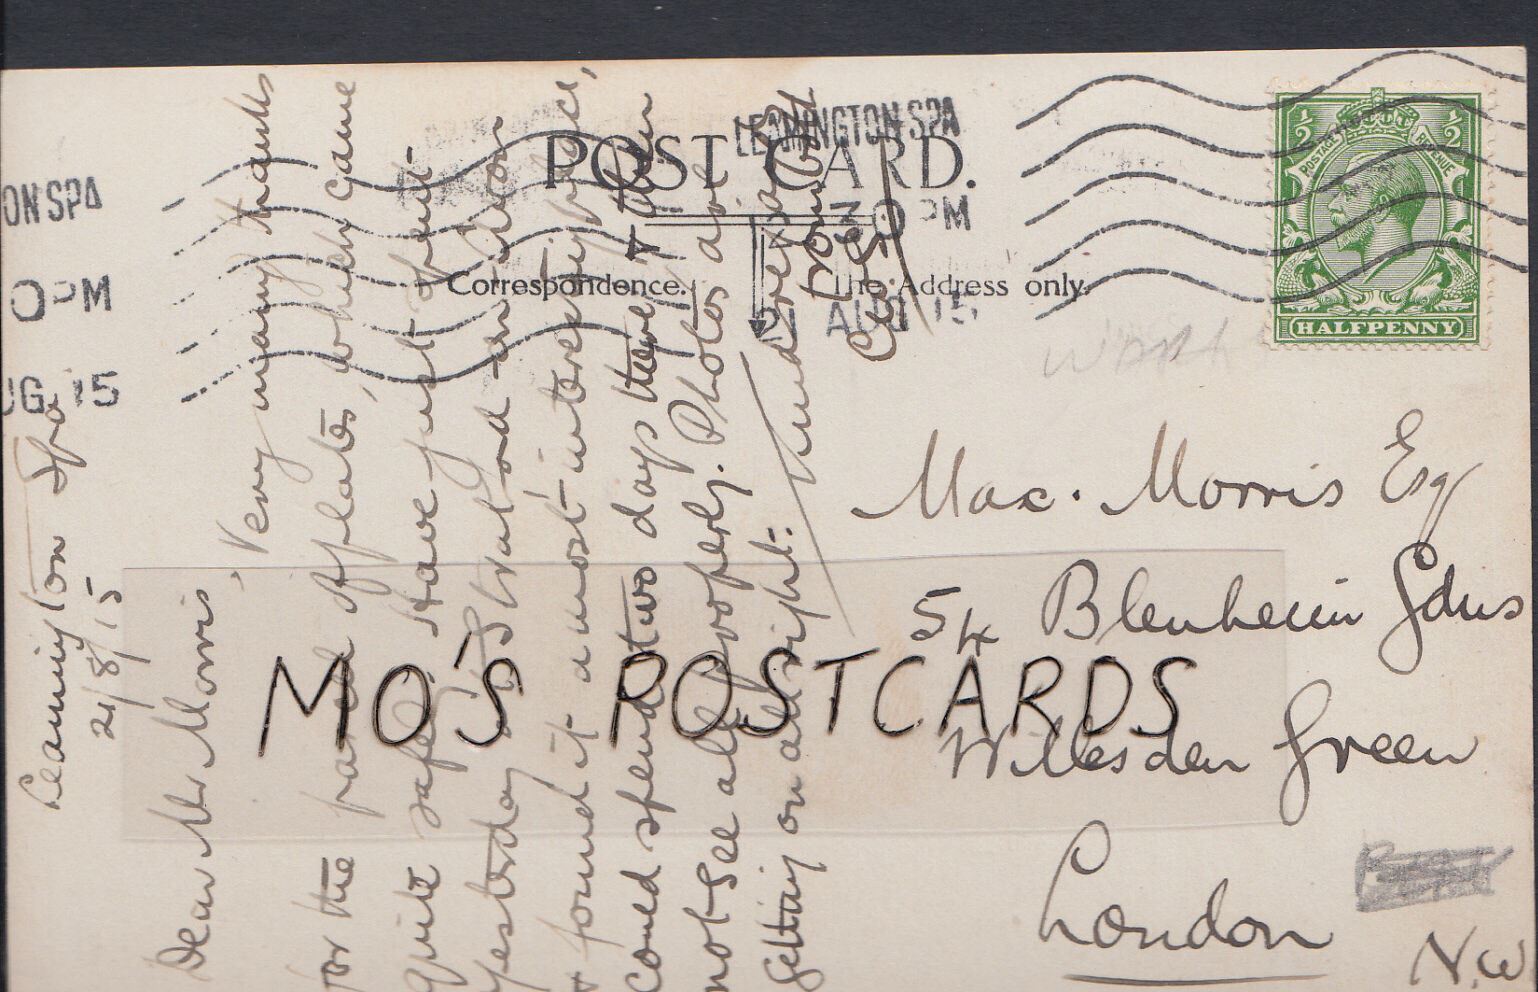 POST CARD.
Correspondence.
The Address only.
LEAMINGTON SPA
30 PM
21 AUG 15
ON SPA
0 PM
UG 15
½ ½
POSTAGE REVENUE
HALFPENNY
Leamington Spa
21/8/15
Dear Mr Morris,
Very many thanks
for the parcel of plates, which came
quite safely. Have just spent
yesterday at Stratford-on-Avon
& found it a most interesting place,
could spend two days there & then
not see all properly. Photos are
getting on allright.
Kind regards
from
Max. Morris Esq
54 Blenheim Gdns
Willesden Green
London
N.W
MO'S POSTCARDS